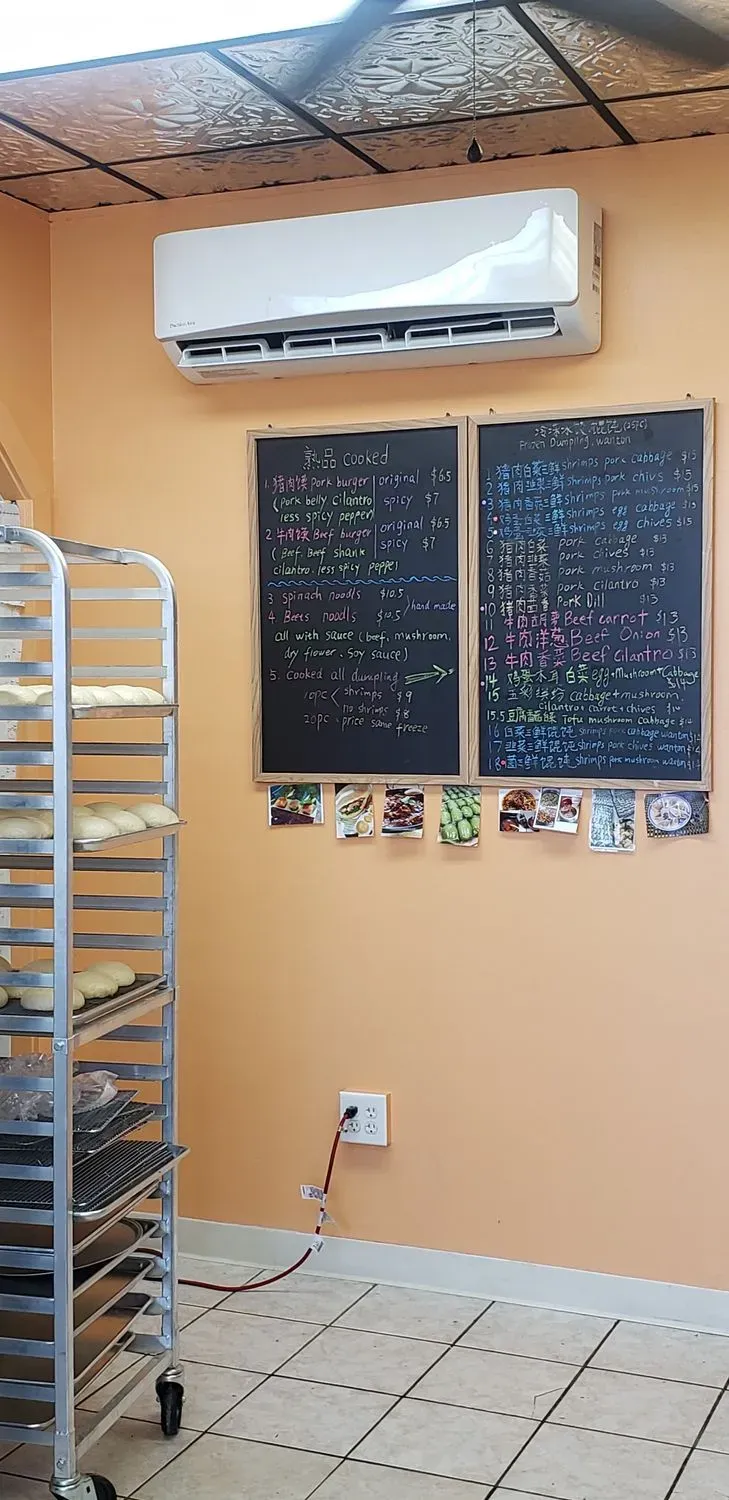 熟品 cooked
1. 猪肉馍 pork burger original $6.5
(pork belly cilantro spicy $7
less spicy pepper)
2. 牛肉馍 Beef burger original $6.5
(Beef. Beef shank spicy $7
cilantro. less spicy pepper
3 spinach noodls $10.5
4 Beets noodls $10.5 hand made
all with sauce (beef, mushroom,
dry flower. soy sauce)
5. Cooked all dumpling
10pc shrimps $9
no shrimps $8
20pc - price same freeze
Frozen Dumpling. wanton
1 猪肉白菜三鲜 shrimps pork cabbage $15
2 猪肉韭菜三鲜 shrimps pork chivs $15
3 猪肉香菇三鲜 shrimps pork mushroom $15
4 鸡蛋白菜三鲜 shrimps egg cabbage $15
5 鸡蛋韭菜三鲜 shrimps egg chives $15
6 猪肉白菜 pork cabbage $13
7 猪肉韭菜 pork chives $13
8 猪肉香菇 pork mushroom $13
9 猪肉香菜 pork cilantro $13
10 猪肉茴香 Pork Dill $13
11 牛肉胡萝 Beef carrot $13
12 牛肉洋葱 Beef Onion $13
13 牛肉香菜 Beef cilantro $13
14 鸡蛋木耳白菜 egg+Mushroom+Cabbage
15 五彩缤纷 cabbage+mushroom
cilantro+carrot+chives
15.5 豆腐 Tofu mushroom cabbage
16 白菜三鲜馄饨 shrimps pork cabbage wanton
17 韭菜三鲜馄饨 shrimps pork chives wanton
18 菌三鲜馄饨 shrimps pork mushroom wanton